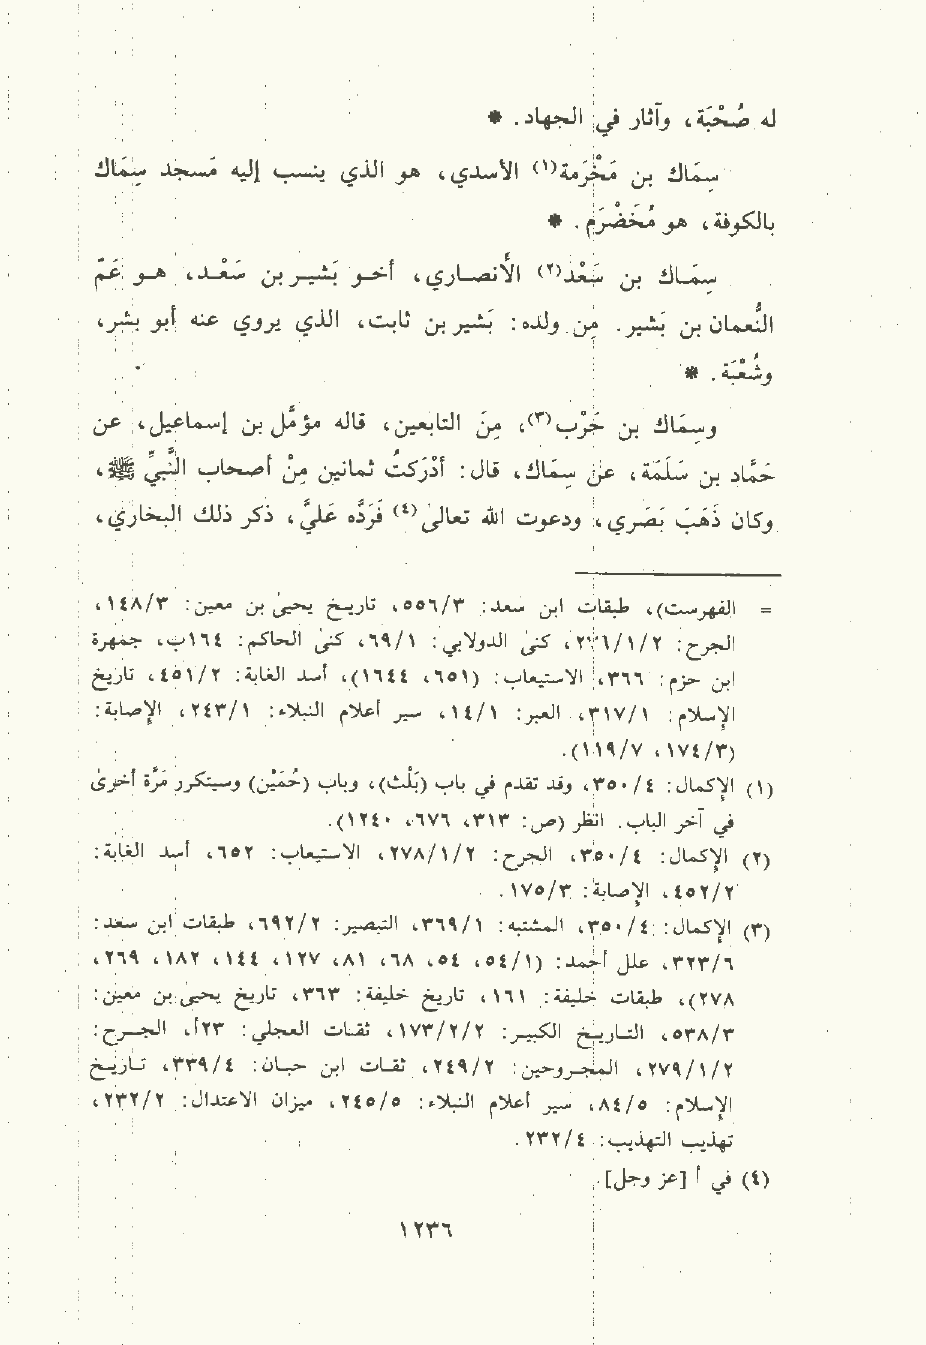 له صُحْبَة، وآثار في الجهاد. *
سِمَاك بن مَخْرَمة(١) الأسدي، هو الذي ينسب إليه مَسجد سِمَاك
بالكوفة، وهو مُخَضْرَم. *
سِمَاك بن سَعْد(٢) الأنصاري، أخو بَشير بن سَعْد، وهو عَمّ
النُّعمان بن بَشير. مِن ولده: بَشير بن ثابت، الذي يروي عنه أبو بشر،
وشُعْبَة. *
وسِمَاك بن حَرْب(٣)، مِنَ التابعين، قاله مؤمَّل بن إسماعيل، عن
حَمَّاد بن سَلَمَة، عن سِمَاك، قال: أدْرَكتُ ثمانين مِنْ أصحاب النَّبيِّ ﷺ،
وكان ذَهَبَ بَصَري، ودعوت الله تعالى(٤) فَرَدَّه عَليَّ، ذكر ذلك البخاري،
= الفهرست)، طبقات ابن سعد: ٥٥٦/٣، تاريخ يحيى بن معين: ١٤٨/٣،
الجرح: ٢٧٦/١/٢، كنى الدولابي: ٦٩/١، كنى الحاكم: ١٦٤ب، جمهرة
ابن حزم: ٣٦٦، الاستيعاب: (٦٥١، ١٦٤٤)، أسد الغابة: ٤٥١/٢، تاريخ
الإسلام: ٣١٧/١، العبر: ١٤/١، سير أعلام النبلاء: ٢٤٣/١، الإصابة:
(١٧٤/٣، ١١٩/٧).
(١) الإكمال: ٣٥٠/٤، وقد تقدم في باب (بَلْث)، وباب (حُمَيْن) وسيتكرر مَرَّة أخرى
في آخر الباب. انظر (ص: ٣١٣، ٦٧٦، ١٢٤٠).
(٢) الإكمال: ٣٥٠/٤، الجرح: ٢٧٨/١/٢، الاستيعاب: ٦٥٢، أسد الغابة:
٤٥٢/٢، الإصابة: ١٧٥/٣.
(٣) الإكمال: ٣٥٠/٤، المشتبه: ٣٦٩/١، التبصير: ٦٩٢/٢، طبقات ابن سعد:
٣٢٣/٦، علل أحمد: (٥٤/١، ٥٤، ٦٨، ٨١، ١٢٧، ١٤٤، ١٨٢، ٢٦٩،
٢٧٨)، طبقات خليفة: ١٦١، تاريخ خليفة: ٣٦٣، تاريخ يحيى بن معين:
٥٣٨/٣، التاريخ الكبير: ١٧٣/٢/٢، ثقات العجلي: ٢٣أ، الجرح:
٢٧٩/١/٢، المجروحين: ٢٤٩/٢، ثقات ابن حبان: ٣٣٩/٤، تاريخ
الإسلام: ٨٤/٥، سير أعلام النبلاء: ٢٤٥/٥، ميزان الاعتدال: ٢٣٢/٢،
تهذيب التهذيب: ٢٣٢/٤.
(٤) في أ [عز وجل].
١٢٣٦